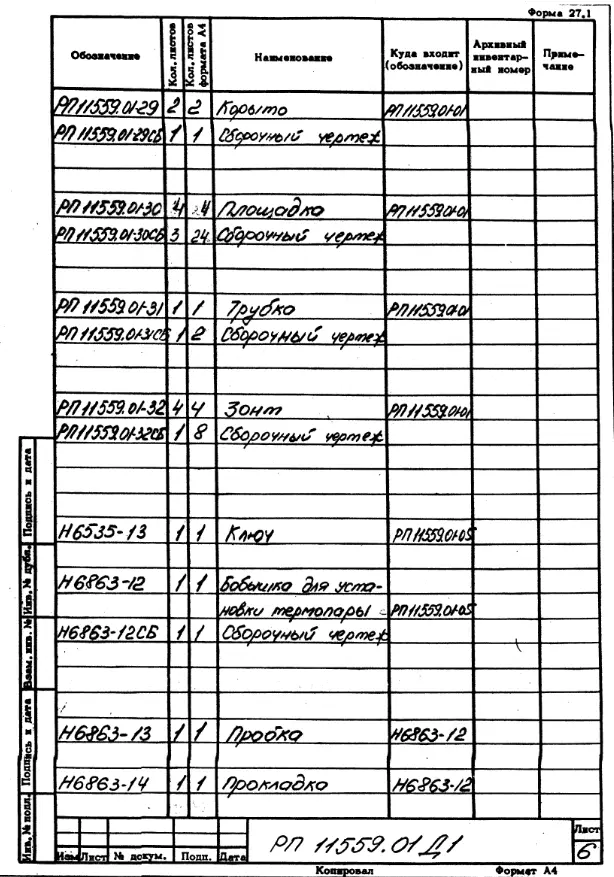 Форма 27.1
Обозначение Кол. листов Кол. листов формата А4 Наименование Куда входит (обозначение) Архивный инвентар-ный номер Приме-чание
РП11559.01-29 2 2 Корыто РП11559.01-01
РП11559.01-29СБ 1 1 Сборочный чертеж
РП11559.01-30 4 4 Площадка РП11559.01-01
РП11559.01-30СБ 3 24 Сборочный чертеж
РП11559.01-31 1 1 Трубка РП11559.01-01
РП11559.01-31СБ 1 2 Сборочный чертеж
РП11559.01-32 4 4 Зонт РП11559.01-01
РП11559.01-32СБ 1 8 Сборочный чертеж
Н6535-13 1 1 Ключ РП11559.01-05
Н6863-12 1 1 Бобышка для уста-
новки термопары РП11559.01-05
Н6863-12СБ 1 1 Сборочный чертеж
Н6863-13 1 1 Пробка Н6863-12
Н6863-14 1 1 Прокладка Н6863-12
Инв.№ подл. Подпись и дата Взам. инв. № Инв.№ дубл. Подпись и дата
РП 11559.01 Д1
Лист
6
Изм Лист № докум. Подп. Дата
Копировал Формат А4